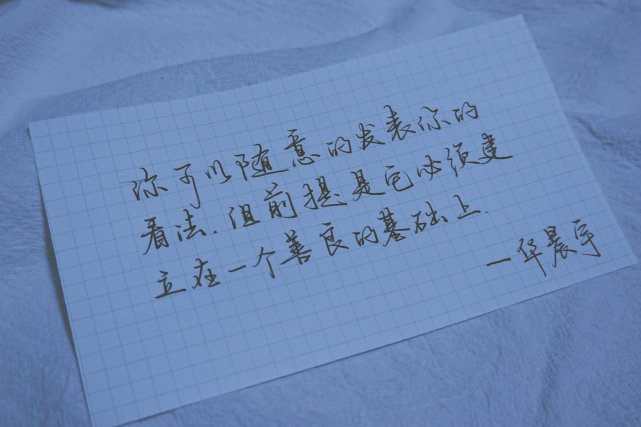 你可以随意的发表你的
看法.但前提是它必须建
立在一个善良的基础上.
—华晨宇